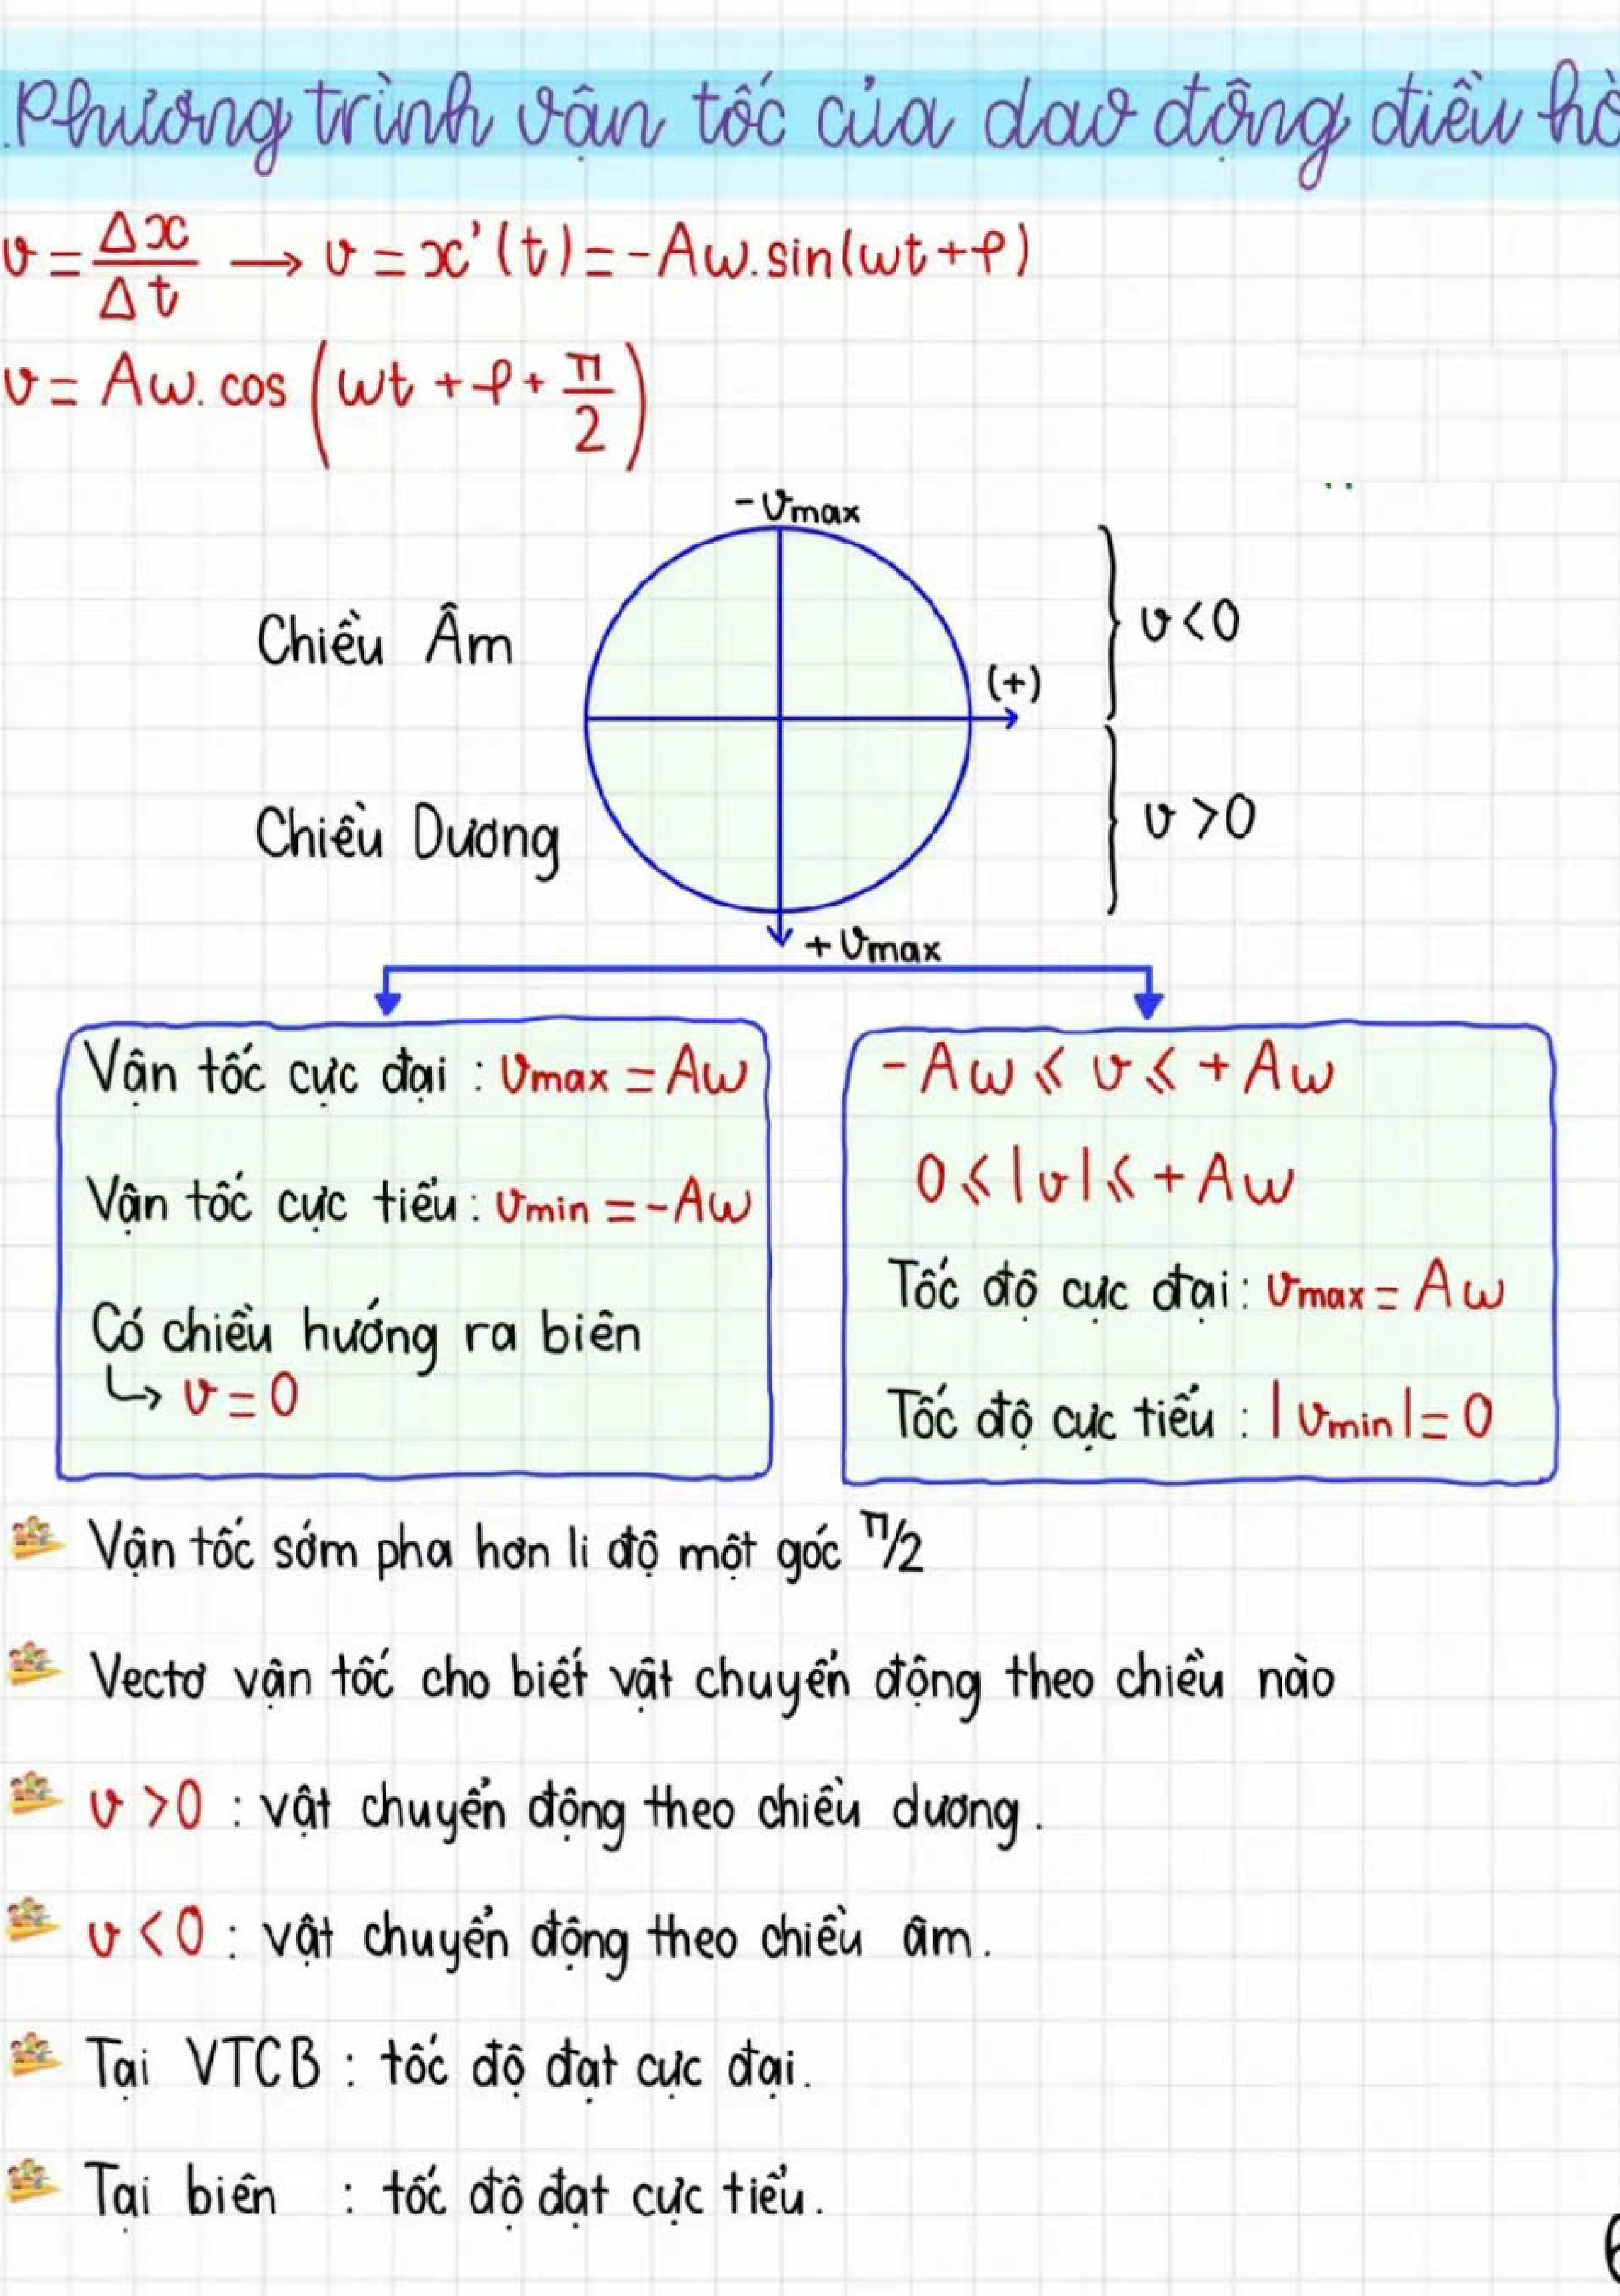 Phương trình vận tốc của dao động điều hò
v = Δx/Δt → v = x'(t) = -Aω.sin(ωt+φ)
v = Aω.cos(ωt + φ + π/2)
-vmax
Chiều Âm
v<0
(+)
Chiều Dương
v>0
+vmax
Vận tốc cực đại : vmax = Aω
Vận tốc cực tiểu : vmin = -Aω
Có chiều hướng ra biên
↳ v = 0
-Aω ⩽ v ⩽ +Aω
0 ⩽ |v| ⩽ +Aω
Tốc độ cực đại: vmax = Aω
Tốc độ cực tiểu : |vmin| = 0
Vận tốc sớm pha hơn li độ một góc π/2
Vectơ vận tốc cho biết vật chuyển động theo chiều nào
v >0 : vật chuyển động theo chiều dương.
v <0 : vật chuyển động theo chiều âm.
Tại VTCB : tốc độ đạt cực đại.
Tại biên : tốc độ đạt cực tiểu.